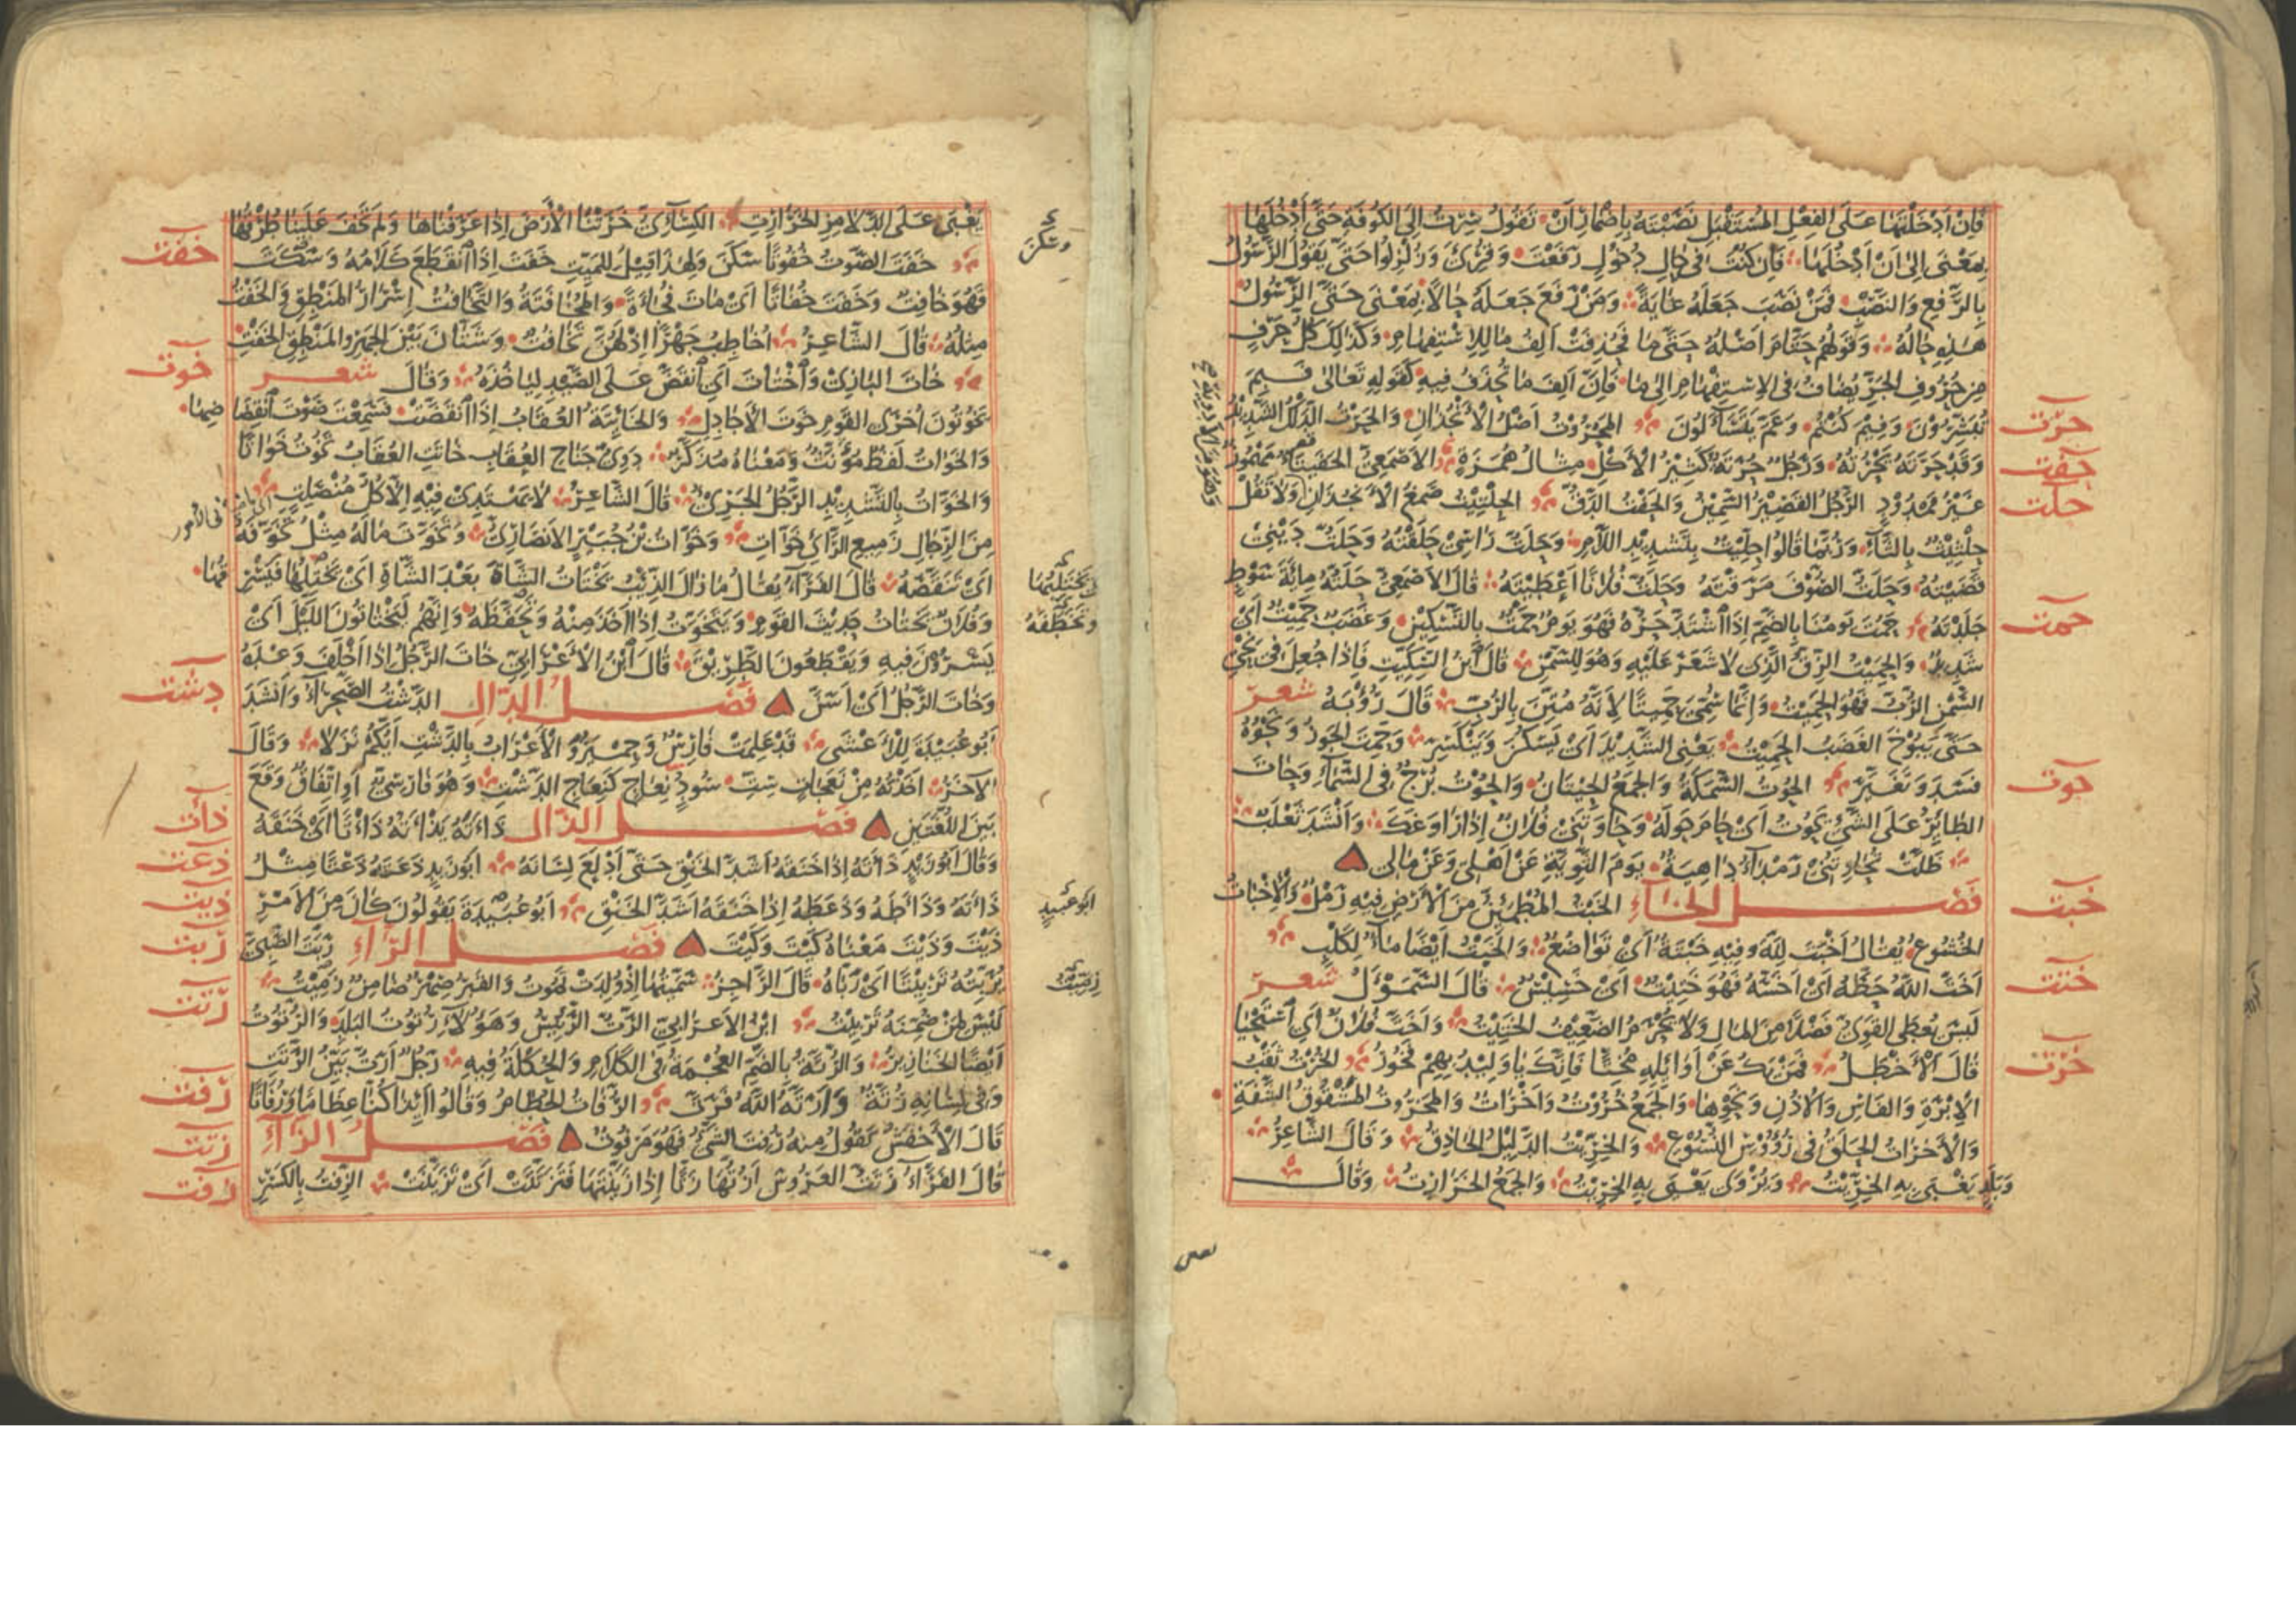 فَإِنْ أَدْخَلْتَهَا عَلَى الفِعْلِ المُسْتَقْبِلِ نَصَبْتَهُ بِإِضْمَارِ أَنْ تَقُولُ سِرْتُ إِلَى الكُوفَةِ حَتَّى أَدْخُلَهَا
بِمَعْنَى إِلَى أَنْ أَدْخُلَهَا فَإِنْ كُنْتَ فِي حَالِ دُخُولٍ رَفَعْتَ وَقُرِئَ وَزُلْزِلُوا حَتَّى يَقُولَ الرَّسُولُ
بِالرَّفْعِ وَالنَّصْبِ فَمَنْ نَصَبَ جَعَلَهُ غَايَةً وَمَنْ رَفَعَ جَعَلَهُ حَالًا بِمَعْنَى حَتَّى الرَّسُولُ
هَذِهِ حَالُهُ وَقَوْلُهُمْ حَتَّامَ أَصْلُهُ حَتَّى مَا فَحُذِفَتْ أَلِفُ مَا لِلِاسْتِفْهَامِ وَكَذَلِكَ كُلُّ حَرْفٍ
مِنْ حُرُوفِ الجَرِّ يُضَافُ فِي الِاسْتِفْهَامِ إِلَى مَا فَإِنَّ أَلِفَ مَا تُحْذَفُ فِيهِ كَقَوْلِهِ تَعَالَى فَبِمَ
تُبَشِّرُونَ وَفِيمَ كُنْتُمْ وَعَمَّ يَتَسَاءَلُونَ المَحْرُوتُ أَصْلُ الأَنْجُذَانِ وَالحَرْتُ الدَّلْكُ الشَّدِيدُ
حرت
وَقَدْ حَرَتَهُ يَحْرُتُهُ وَرَجُلٌ حُرَتَةٌ كَثِيرُ الأَكْلِ مِثَالُ هُمَزَةٍ الأَصْمَعِيُّ الحَفَيْتَأُ مَهْمُوزٌ
حفت
غَيْرُ مَمْدُودٍ الرَّجُلُ القَصِيرُ السَّمِينُ وَالحَفْتُ الدَّقُّ الحِلْتِيتُ صَمْغُ الأَنْجُذَانِ وَلَا تَقُلْ
حلت
حِلْتِيثٌ بِالثَّاءِ وَرُبَّمَا قَالُوا حِلِّيتٌ بِتَشْدِيدِ اللَّامِ وَحَلَتُّ رَأْسِي حَلَقْتُهُ وَحَلَتُّ دَيْنِي
قَضَيْتُهُ وَحَلَتُّ الصُّوفَ مَزَقْتُهُ وَحَلَتُّ فُلَانًا أَعْطَيْتُهُ قَالَ الأَصْمَعِيُّ حَلَتُّهُ مِائَةَ سَوْطٍ
جَلَدْتُهُ حَمُتَ يَوْمُنَا بِالضَّمِّ إِذَا اشْتَدَّ حَرُّهُ فَهُوَ يَوْمٌ حَمْتٌ بِالتَّسْكِينِ وَغَضَبٌ حَمِيتٌ أَيْ
حمت
شَدِيدٌ وَالحَمِيتُ الزِّقُّ الَّذِي لَا شَعَرَ عَلَيْهِ وَهُوَ لِلسَّمْنِ قَالَ ابْنُ السِّكِّيتِ فَإِذَا جُعِلَ فِي نِحْيِ
السَّمْنِ الرُّبُّ فَهُوَ الحَمِيتُ وَإِنَّمَا سُمِّيَ حَمِيتًا لِأَنَّهُ مُتِّنَ بِالرُّبِّ قَالَ رُؤْبَةُ شعر
حَتَّى يَبُوخَ الغَضَبُ الحَمِيتُ يَعْنِي الشَّدِيدَ أَيْ يَسْكُنُ وَيَنْكَسِرُ وَحَمِتَ الجَوْزُ وَنَحْوُهُ
فَسَدَ وَتَغَيَّرَ الحُوتُ السَّمَكَةُ وَالجَمْعُ الحِيتَانُ وَالحُوتُ بُرْجٌ فِي السَّمَاءِ وَحَاتَ
حوت
الطَّائِرُ عَلَى الشَّيْءِ يَحُوتُ أَيْ حَامَ حَوْلَهُ وَحَاوَتَنِي فُلَانٌ إِذَا رَاوَغَكَ وَأَنْشَدَ ثَعْلَبٌ
ظَلَّتْ تُحَاوِتُنِي رَمْدَاءُ دَاهِيَةٌ يَوْمَ الثَّوِيَّةِ عَنْ أَهْلِي وَعَنْ مَالِي
فَصْلُ الخَاءِ الخَبْتُ المُطْمَئِنُّ مِنَ الأَرْضِ فِيهِ رَمْلٌ وَالإِخْبَاتُ
خبت
الخُشُوعُ يُقَالُ أَخْبَتَ لِلَّهِ وَفِيهِ خَبْتَةٌ أَيْ تَوَاضُعٌ وَالخَبْتُ أَيْضًا مَاءٌ لِكَلْبٍ
أَخَتَّ اللَّهُ حَظَّهُ أَيْ أَخَسَّهُ فَهُوَ خَتِيتٌ أَيْ خَسِيسٌ قَالَ السَّمَوْأَلُ شعر
ختت
لَيْسَ يُعْطَى القَوِيُّ فَضْلًا مِنَ المَالِ وَلَا يُحْرَمُ الضَّعِيفُ الخَتِيتُ وَأَخَتَّ فُلَانٌ أَيِ اسْتَحْيَا
قَالَ الأَخْطَلُ فَمَنْ يَكُ عَنْ أَوَائِلِهِ مُخِتًّا فَإِنَّكَ يَا وَلِيدُ بِهِمْ فَخُورُ الخُرْتُ ثَقْبُ
خرت
الإِبْرَةِ وَالفَأْسِ وَالأُذُنِ وَنَحْوِهَا وَالجَمْعُ خُرُوتٌ وَأَخْرَاتٌ وَالمَخْرُوتُ المَشْقُوقُ الشَّفَةِ
وَالأَخْرَاتُ الحَلَقُ فِي رُؤُوسِ النُّسُوعِ وَالخِرِّيتُ الدَّلِيلُ الحَاذِقُ وَقَالَ الشَّاعِرُ
وَبَلَدٍ يَغْبَى بِهِ الخِرِّيتُ وَيُرْوَى يَعْيَى بِهِ الخِرِّيتُ وَالجَمْعُ الخَرَارِتُ وَقَالَ
يَغْبَى عَلَى الدَّلَامِزِ الخَرَارِتِ الكِسَائِيُّ خَرَتْنَا الأَرْضَ إِذَا عَرَفْنَاهَا وَلَمْ تَخْفَ عَلَيْنَا طُرُقُهَا
خَفَتَ الصَّوْتُ خُفُوتًا سَكَنَ وَلِهَذَا قِيلَ لِلْمَيِّتِ خَفَتَ إِذَا انْقَطَعَ كَلَامُهُ وَسَكَتَ
خفت
فَهُوَ خَافِتٌ وَخَفَتَ خُفَاتًا أَيْ مَاتَ فُجَاءَةً وَالمُخَافَتَةُ وَالتَّخَافُتُ إِسْرَارُ المَنْطِقِ وَالخَفْتُ
مِثْلُهُ قَالَ الشَّاعِرُ أُخَاطِبُ جَهْرًا إِذْ لَهُنَّ تَخَافُتٌ وَشَتَّانَ بَيْنَ الجَهْرِ وَالمَنْطِقِ الخَفْتِ
خَاتَ البَازِيُ وَاخْتَاتَ أَيِ انْقَضَّ عَلَى الصَّيْدِ لِيَأْخُذَهُ وَقَالَ شعر
خوت
يَخُوتُونَ أُخْرَى القَوْمِ خَوْتَ الأَجَادِلِ وَالخَائِتَةُ العُقَابُ إِذَا انْقَضَّتْ فَسَمِعْتَ صَوْتَ انْقِضَاضِهَا
وَالخَوَاتُ لَفْظٌ مُؤَنَّثٌ وَمَعْنَاهُ مُذَكَّرٌ دَوِيُّ جَنَاحِ العُقَابِ خَاتَتِ العُقَابُ تَخُوتُ خَوَاتًا
وَالخَوَّاتُ بِالتَّشْدِيدِ الرَّجُلُ الجَرِيُّ قَالَ الشَّاعِرُ لَا يَهْتَدِي فِيهِ إِلَّا كُلُّ مُنْصَلِتٍ
مِنَ الرِّجَالِ زَمِيعِ الرَّأْيِ خَوَّاتِ وَخَوَّاتُ بْنُ جُبَيْرٍ الأَنْصَارِيُّ وَتَخَوَّتَ مَالَهُ مِثْلُ تَخَوَّفَهُ
أَيْ تَنَقَّصَهُ قَالَ الفَرَّاءُ يُقَالُ مَا زَالَ الذِّئْبُ يَخْتَاتُ الشَّاةَ بَعْدَ الشَّاةِ أَيْ يَخْتِلُهَا فَيَسْرِقُهَا
وَفُلَانٌ يَخْتَاتُ حَدِيثَ القَوْمِ وَيَتَخَوَّتُ إِذَا أَخَذَ مِنْهُ وَتَحَفَّظَهُ وَإِنَّهُمْ لَيَخْتَاتُونَ اللَّيْلَ أَيْ
يَسْرُونَ فِيهِ وَيَقْطَعُونَ الطَّرِيقَ قَالَ ابْنُ الأَعْرَابِيِّ خَاتَ الرَّجُلُ إِذَا أَخْلَفَ وَعْدَهُ
وَخَاتَ الرَّجُلُ أَيْ أَسَنَّ فَصْلُ الدَّالِ الدَّشْتُ الصَّحْرَاءُ وَأَنْشَدَ
دشت
أَبُو عُبَيْدَةَ لِلْأَعْشَى قَدْ عَلِمَتْ فَارِسٌ وَحِمْيَرُ وَالأَعْرَابُ بِالدَّشْتِ أَيُّكُمْ نَزَلَا وَقَالَ
الآخَرُ أَخَذْتُهُ مِنْ نَعَجَاتٍ سِتِّ سُودٍ نِعَاجٍ كَنِعَاجِ الدَّشْتِ وَهُوَ فَارِسِيٌّ أَوِ اتِّفَاقٌ وَقَعَ
بَيْنَ اللُّغَتَيْنِ فَصْلُ الذَّالِ ذَأَتَهُ يَذْأَتُهُ ذَأْتًا أَيْ خَنَقَهُ
ذأت
وَقَالَ أَبُو زَيْدٍ ذَأَتَهُ إِذَا خَنَقَهُ أَشَدَّ الخَنِقِ حَتَّى أَدْلَعَ لِسَانَهُ أَبُو زَيْدٍ ذَعَتَهُ ذَعْتًا مِثْلُ
ذعت
ذَأَتَهُ وَذَأَطَهُ وَذَعَطَهُ إِذَا خَنَقَهُ أَشَدَّ الخَنِقِ أَبُو عُبَيْدَةَ يَقُولُونَ كَانَ مِنَ الأَمْرِ
ذيت
أبو عبيد
ذَيْتَ وَذَيْتَ مَعْنَاهُ كَيْتَ وَكَيْتَ فَصْلُ الرَّاءِ رَبَتَ الصَّبِيَّ
ربت
يُرَبِّتُهُ تَرْبِيتًا أَيْ رَبَّاهُ قَالَ الرَّاجِزُ سَمَّيْتُهَا إِذْ وُلِدَتْ تَمُوتُ وَالقَبْرُ صِهْرٌ ضَامِنٌ زِمِّيتُ
لَيْسَ لِمَنْ ضُمِّنَهُ تَرْبِيتُ ابْنُ الأَعْرَابِيِّ الرَّتُّ الرَّئِيسُ وَهَؤُلَاءِ رُتُوتُ البَلَدِ وَالرُّتُوتُ
رتت
أَيْضًا الخَنَازِيرُ وَالرُّتَّةُ بِالضَّمِّ العُجْمَةُ فِي الكَلَامِ وَالحُكْلَةُ فِيهِ رَجُلٌ أَرَتُّ بَيِّنُ الرَّتَتِ
وَفِي لِسَانِهِ رُتَّةٌ وَأَرَتَّهُ اللَّهُ فَرَتَّ الرُّفَاتُ الحُطَامُ وَقَالُوا أَئِذَا كُنَّا عِظَامًا وَرُفَاتًا
رفت
قَالَ الأَخْفَشُ تَقُولُ مِنْهُ رُفِتَ الشَّيْءُ فَهُوَ مَرْفُوتٌ فَصْلُ الزَّاءِ
زتت
قَالَ الفَرَّاءُ زَتَتُّ العَرُوسَ أَزُتُّهَا زَتًّا إِذَا زَيَّنْتَهَا فَتَزَتَّتَتْ أَيْ تَزَيَّنَتْ الزِّفْتُ بِالكَسْرِ
زفت